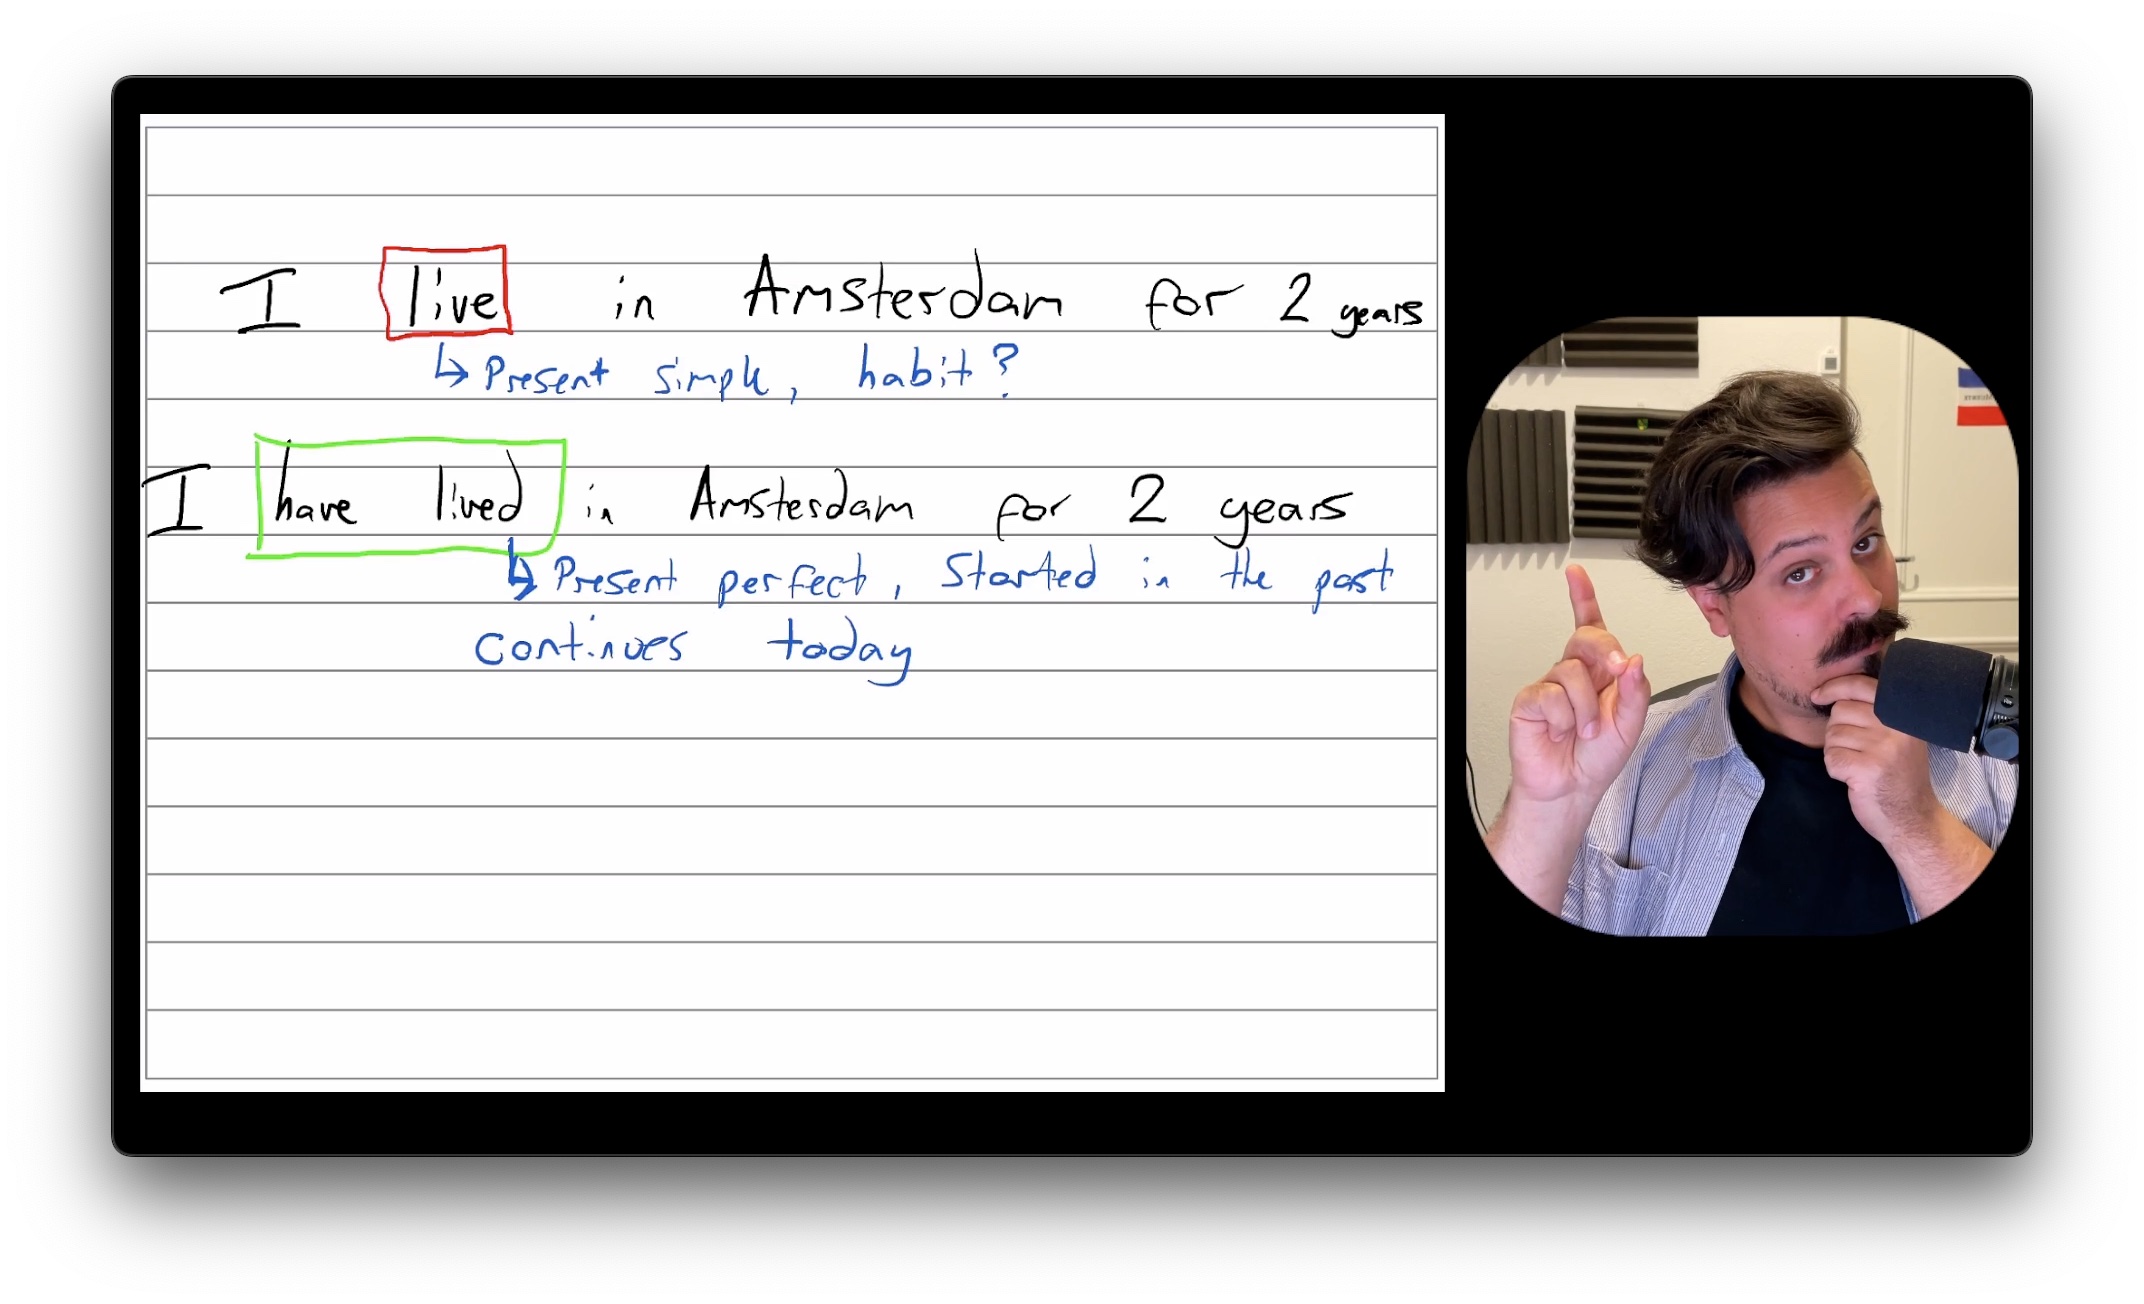 I live in Amsterdam for 2 years
↳ Present simple, habit?
I have lived in Amsterdam for 2 years
↳ Present perfect, Started in the past
continues today